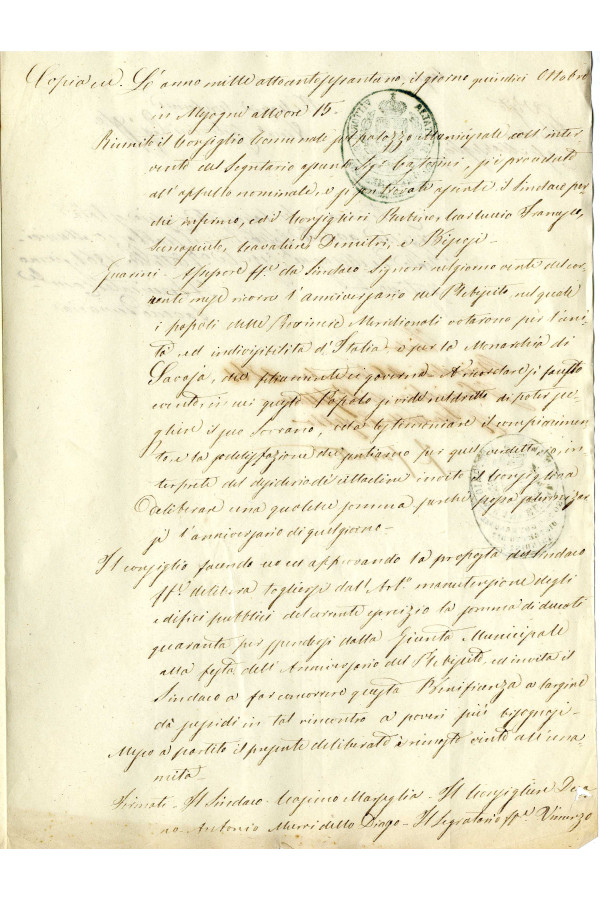 Copia ec. L'anno mille ottocentosessantuno, il giorno quindici Ottobre
in alle ore 15.
Riunito il Consiglio Comunale nel palazzo Municipale coll'inter
vento del Segretario si è proceduto
all'appello nominale, e si il Sindaco per
che infermo, ed i Consiglieri
Cavalier Dimitri, e
Guarini - Assessore ff. da Sindaco Signori nel giorno venti del cor
rente mese ricorre l'anniversario del Plebiscito, nel quale
i popoli delle Provincie Meridionali votarono per l'uni
tà ed indivisibilità d'Italia e per la Monarchia di
Savoja, che ci governa. A ricordare sì fausto
evento, in cui questo Popolo nel dritto di poter sce
gliere il suo Sovrano, ed a testimoniare il compiacimen
to, e la sodisfazione che sentiamo per quel in
terprete del desiderio dei cittadini invito il Consiglio a
deliberare una qualche somma perché possa solennizzar
si l'anniversario di quel giorno -
Il Consiglio facendo eco ed approvando la proposta del Sindaco
ff. delibera togliersi dall'Art.o manutenzione degli
edifici pubblici del corrente esercizio la somma di ducati
quaranta per spendersi dalla Giunta Municipale
alla festa dell'Anniversario del Plebiscito, ed invita il
Sindaco a far concorrere questa Benificenza a largire
de' sussidi in tal rincontro a poveri più bisognosi -
Messo a partito il presente deliberato è rimasto vinto all'una
nimità -
Firmati - Il Sindaco Cosimo Marsiglia - Il Consigliere
Antonio Diago - Il Segretario ff. Vincenzo